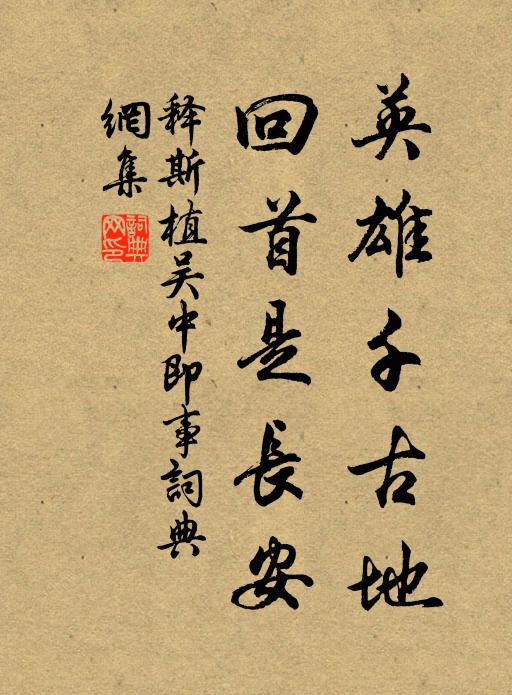 英雄千古地
回首是長安
释斯植吴中即事詞典
網集
詞典
网印